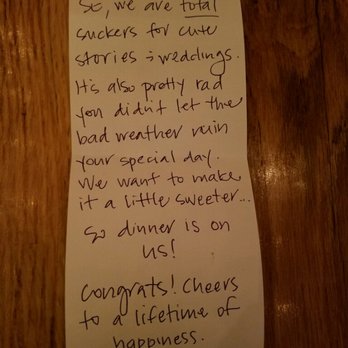 So, we are total
suckers for cute
stories & weddings.
It's also pretty rad
you didn't let the
bad weather ruin
your special day.
We want to make
it a little sweeter...
So dinner is on
us!
Congrats! Cheers
to a lifetime of
happiness.